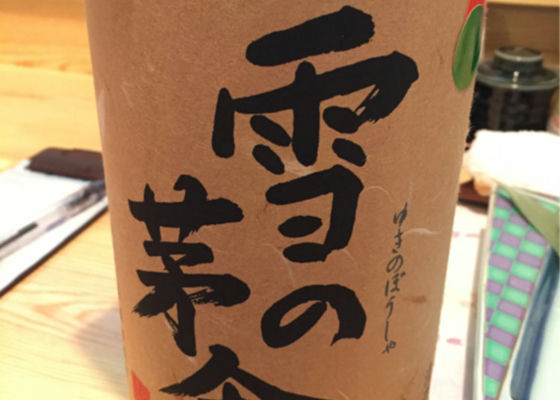 雪の
茅舎
ゆきのぼうしゃ